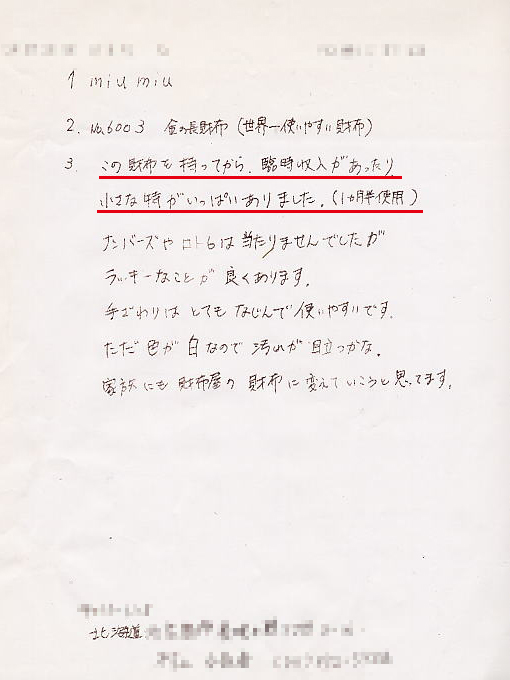 1 miumiu
2. No.6003 金の長財布(世界一使いやすい財布)
3. この財布を持ってから、臨時収入があったり
小さな特がいっぱいありました。(1ヵ月半使用)
ナンバーズやロト6は当たりませんでしたが
ラッキーなことが良くあります。
手ざわりはとてもなじんで使いやすいです。
ただ色が白なので汚れが目立つかな。
家族にも財布屋の財布に変えていこうと思ってます。
北海道